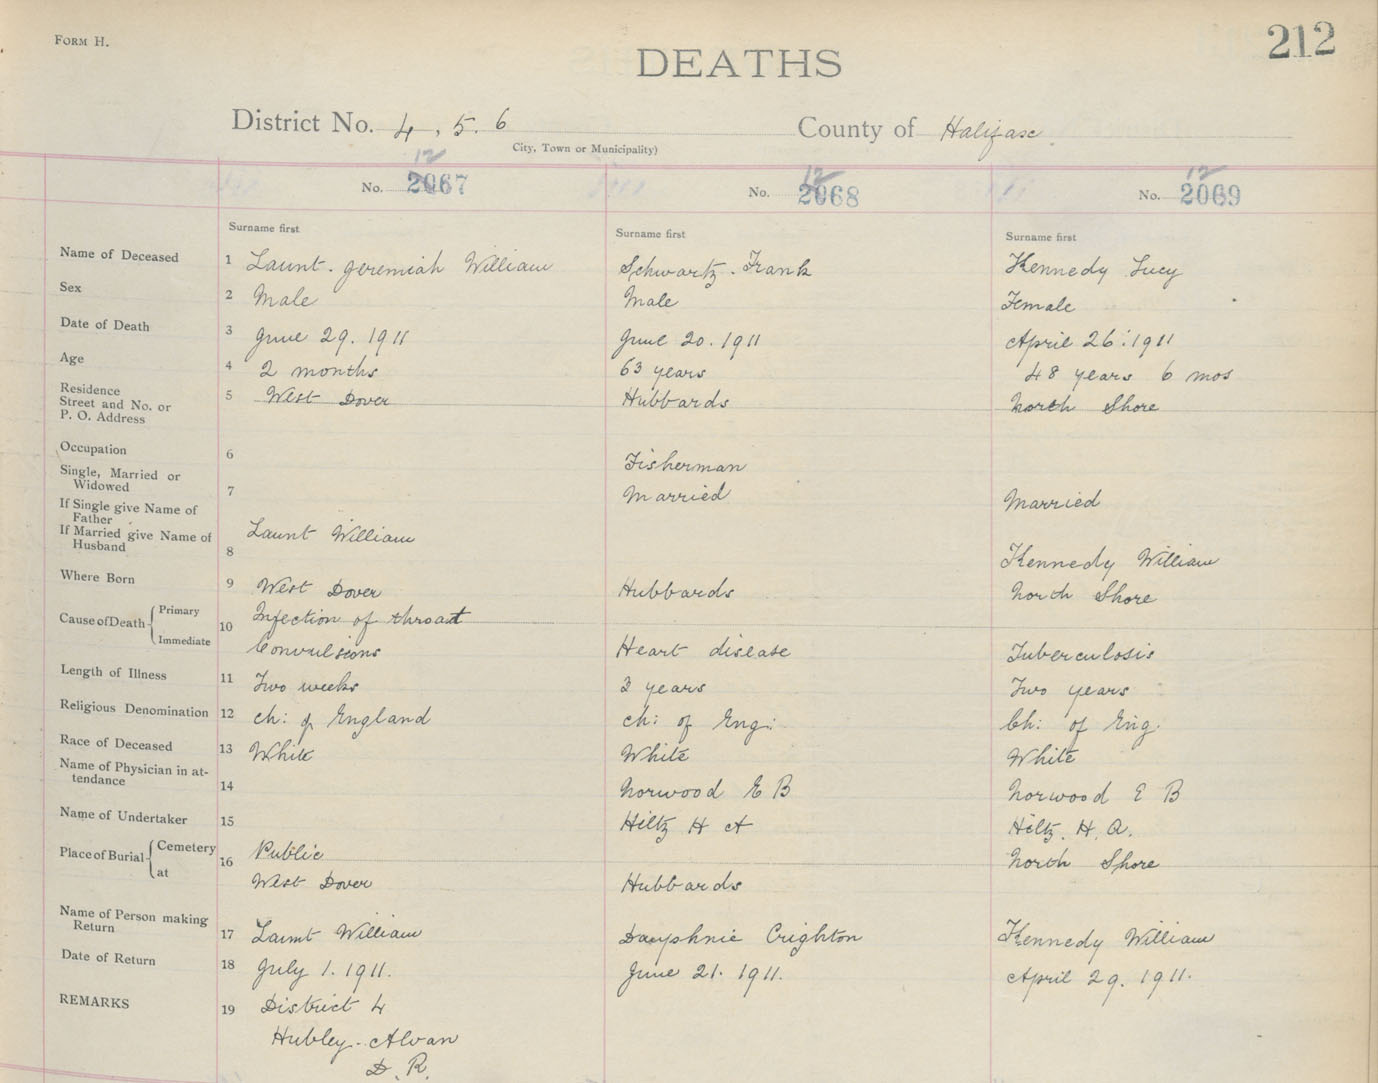 FORM H.
212
DEATHS
District No. 4, 5. 6 County of Halifax
City, Town or Municipality)
12 12 12
No. 2067 No. 2068 No. 2069
Surname first Surname first Surname first
Name of Deceased 1 Launt. Jeremiah William Schwartz. Frank Kennedy Lucy
Sex 2 Male Male Female
Date of Death 3 June 29. 1911 June 20. 1911 April 26: 1911
Age 4 2 months 63 years 48 years 6 mos
Residence
Street and No. or 5 West Dover Hubbards North Shore
P. O. Address
Occupation 6 Fisherman
Single, Married or
Widowed 7 Married Married
If Single give Name of
Father
If Married give Name of Launt William
Husband 8 Kennedy William
Where Born 9 West Dover Hubbards North Shore
Cause of Death Primary 10 Infection of throat
Immediate Convulsions Heart disease Tuberculosis
Length of Illness 11 Two weeks years Two years
Religious Denomination 12 ch: of England ch: of Eng: Ch: of Eng.
Race of Deceased 13 White White White
Name of Physician in at-
tendance 14 Norwood E B Norwood E B
Name of Undertaker 15 Hiltz H A Hiltz. H. A.
Place of Burial Cemetery 16 Public North Shore
at West Dover Hubbards
Name of Person making
Return 17 Launt William Dauphnie Crighton Kennedy William
Date of Return 18 July 1. 1911. June 21. 1911. April 29. 1911.
REMARKS 19 District 4
Hubley. Alvan
D. R.